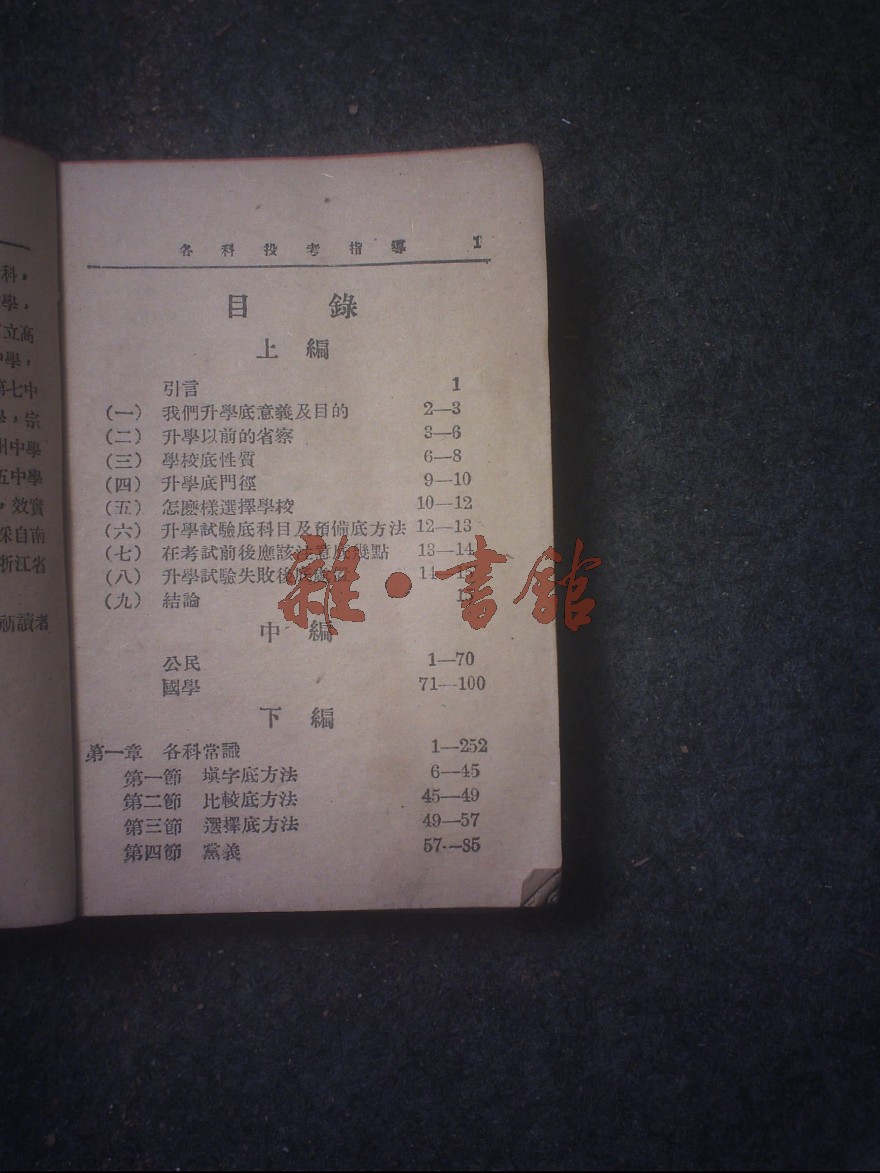 科，
學，
立高
中學，
第七中
學，宗
州中學
五中學
，效實
採自南
浙江省
讀者
各科投考指導 1
目 錄
上 編
引言 1
（一） 我們升學底意義及目的 2—3
（二） 升學以前的省察 3—6
（三） 學校底性質 6—8
（四） 升學底門徑 9—10
（五） 怎麽樣選擇學校 10—12
（六） 升學試驗底科目及預備底方法 12—13
（七） 在考試前後應該注意底幾點 13—14
（八） 升學試驗失敗後底 14—
（九） 結論
雜·書館
中 編
公民 1—70
國學 71—100
下 編
第一章 各科常識 1—252
第一節 填字底方法 6—45
第二節 比較底方法 45—49
第三節 選擇底方法 49—57
第四節 黨義 57—85